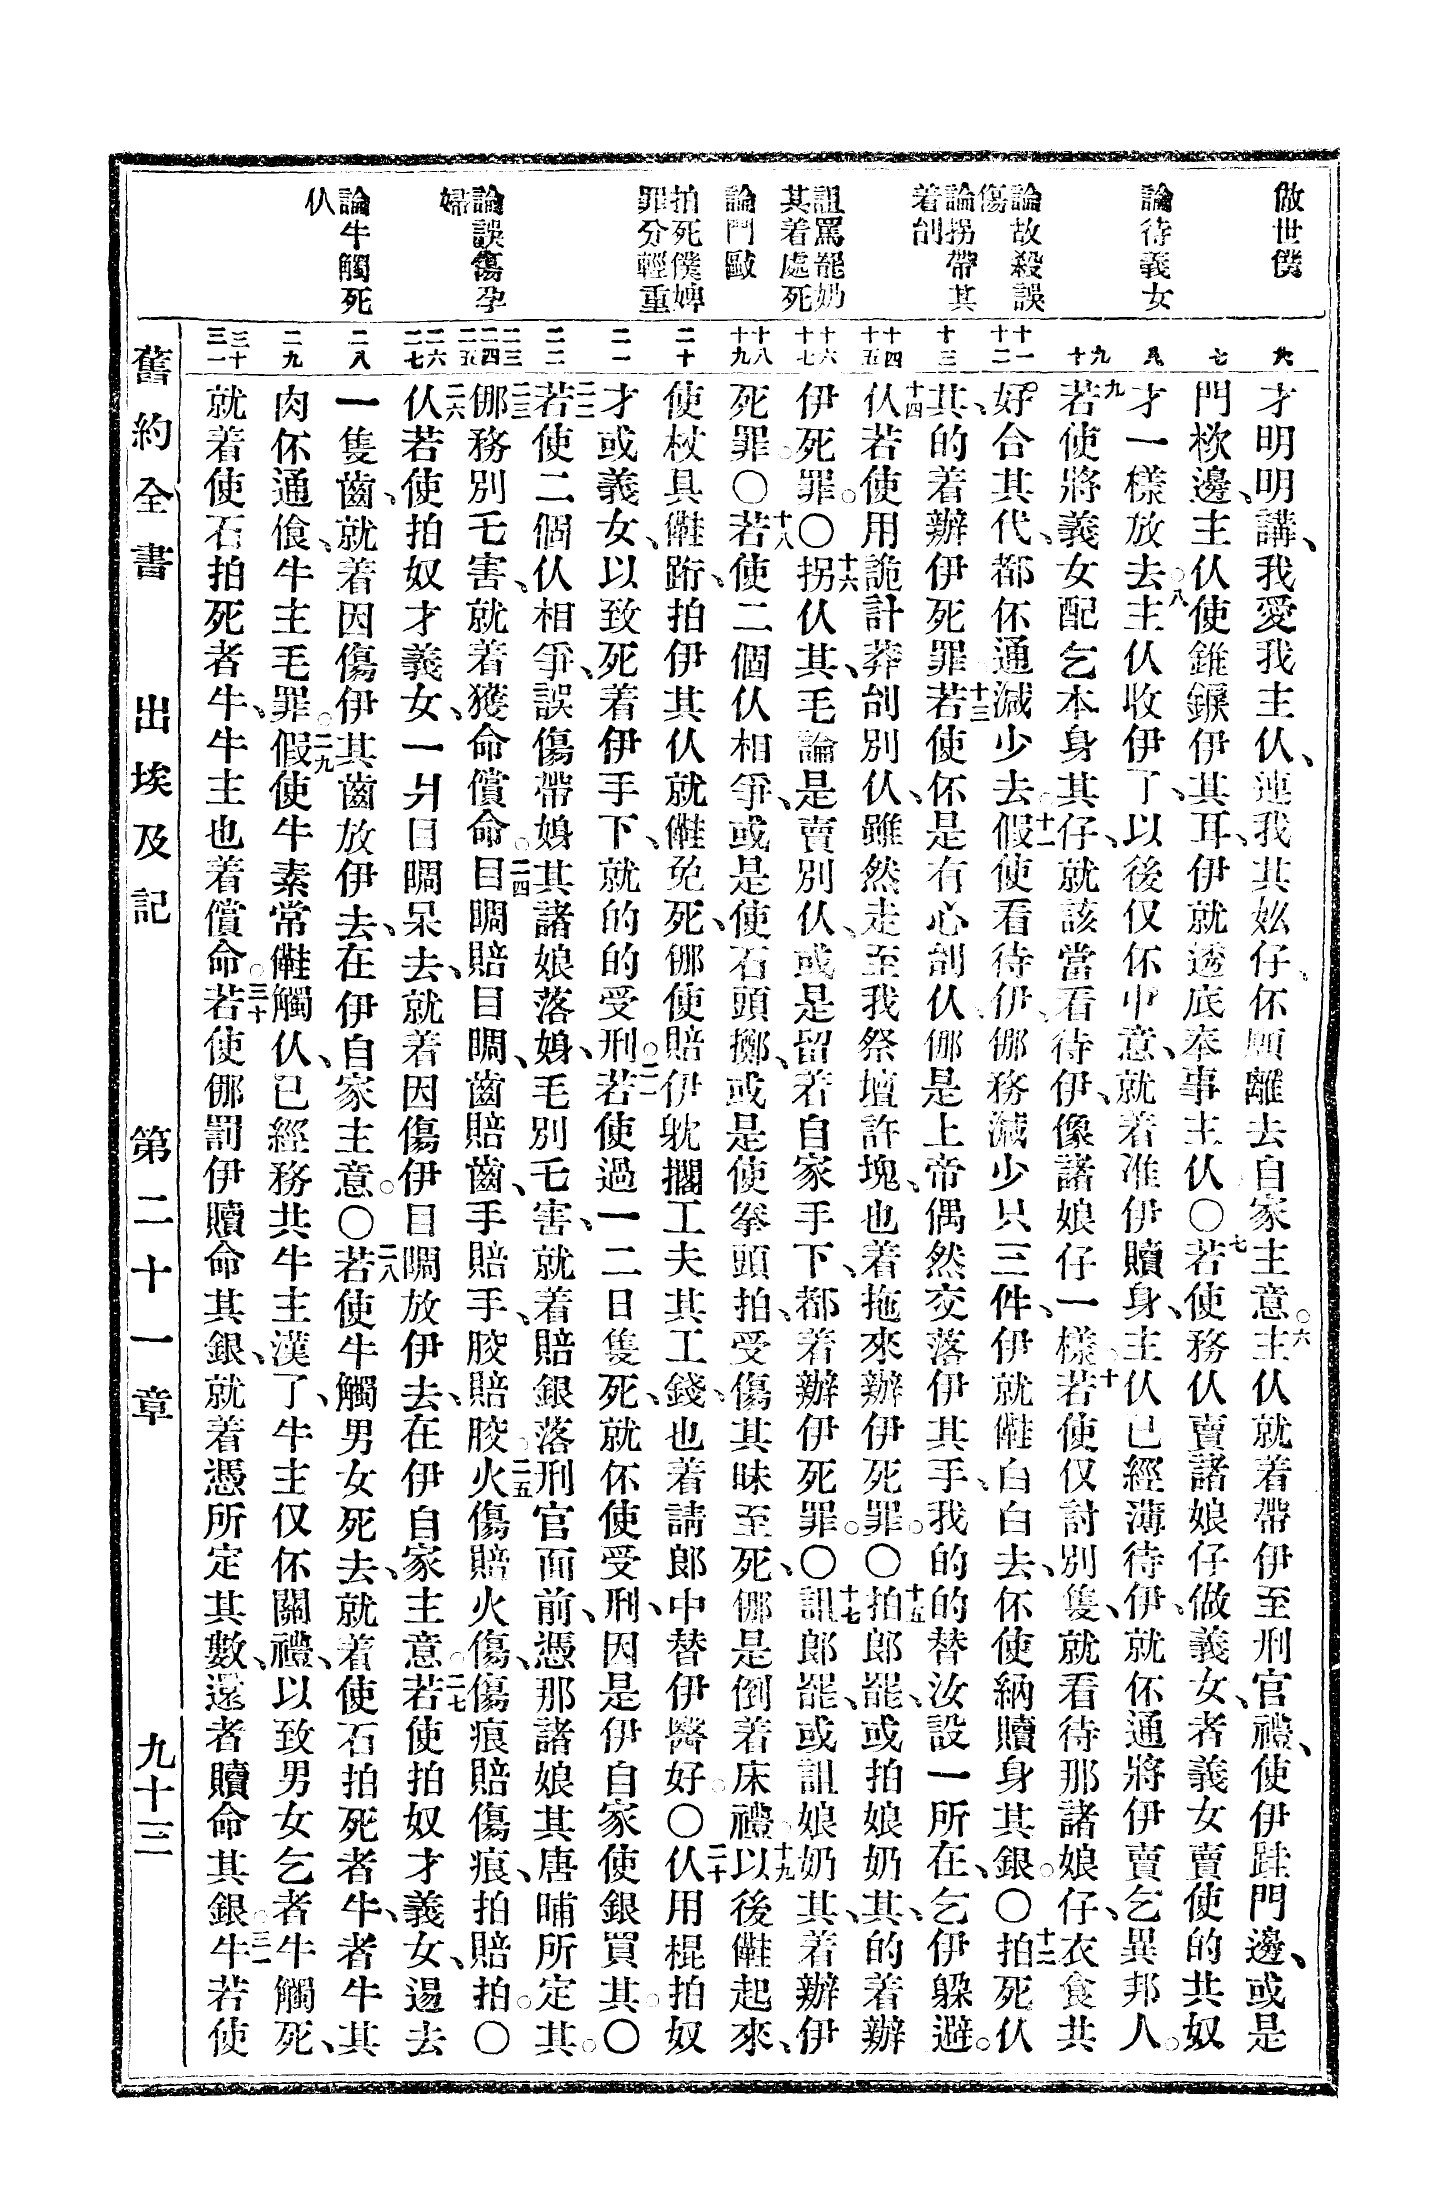 做世僕
論待義女
論故殺誤
傷
論拐帶其
着刣
詛罵罷奶
其着處死
論鬥毆
拍死僕婢
罪分輕重
論誤傷孕
婦
論牛觸死
仈
六
七
八
九
十
十一
十二
十三
十四
十五
十六
十七
十八
十九
二十
二一
二二
二三
二四
二五
二六
二七
二八
二九
三十
三一
才明明講、我愛我主仈、連我其妐仔、伓願離去自家主意。六主仈就着帶伊至刑官禮、使伊跬門邊、或是
門桜邊、主仈使錐鑕伊其耳、伊就透底奉事主仈〇七若使務仈賣諸娘仔做義女、者義女賣使的共奴
才一樣放去。八主仈收伊了、以後仅伓中意、就着准伊贖身、主仈已經薄待伊、就伓通將伊賣乞異邦人。
九若使將義女配乞本身其仔、就該當看待伊、像諸娘仔一樣、十若使仅討別隻、就看待那諸娘仔、衣食共
好合其代、都伓通減少去。十一假使看待伊、㑚務減少只三件、伊就𣍐白白去、伓使納贖身其銀。〇十二拍死仈
其、的着辦伊死罪、十三若使伓是有心刣仈、㑚是上帝偶然交落伊其手、我的的替汝設一所在、乞伊躲避。
十四仈若使用詭計莽刣別仈、雖然走至我祭壇許塊、也着拖來辦伊死罪。〇十五拍郎罷、或拍娘奶其、的着辦
伊死罪。〇十六拐仈其、毛論是賣別仈、或是留着自家手下、都着辦伊死罪。〇十七詛郎罷、或詛娘奶其、着辦伊
死罪。〇十八若使二個仈相爭、或是使石頭擲、或是使拳頭拍、受傷其昧至死、㑚是倒着床禮、十九以後𣍐起來、
使杖具𣍐跡、拍伊其仈就𣍐免死、㑚使賠伊躭擱工夫其工錢、也着請郎中替伊醫好。〇二十仈用棍拍奴
才或義女、以致死着伊手下、就的的受刑。二一若使過一二日隻死、就伓使受刑、因是伊自家使銀買其。〇
二二若使二個仈相爭、誤傷帶娠其諸娘落娠、毛別毛害、就着賠銀落刑官面前、憑那諸娘其唐晡所定其。
二三㑚務別毛害、就着獲命償命。二四目睭賠目睭、齒賠齒、手賠手、骹賠骹、二五火傷賠火傷、傷痕賠傷痕、拍賠拍。〇
二六仈若使拍奴才義女、一爿目睭呆去、就着因傷伊目睭放伊去、在伊自家主意。二七若使拍奴才義女、逿去
一隻齒、就着因傷伊其齒放伊去、在伊自家主意。〇二八若使牛觸男女死去、就着使石拍死者牛、者牛其
肉伓通飡、牛主毛罪。二九假使牛素常𣍐觸仈、已經務共牛主漢了、牛主仅伓關禮、以致男女乞者牛觸死、
就着使石拍死者牛、牛主也着償命。三十若使㑚罰伊贖命其銀、就着憑所定其數、還者贖命其銀。三一牛若使
舊約全書　出埃及記　第二十一章　九十三